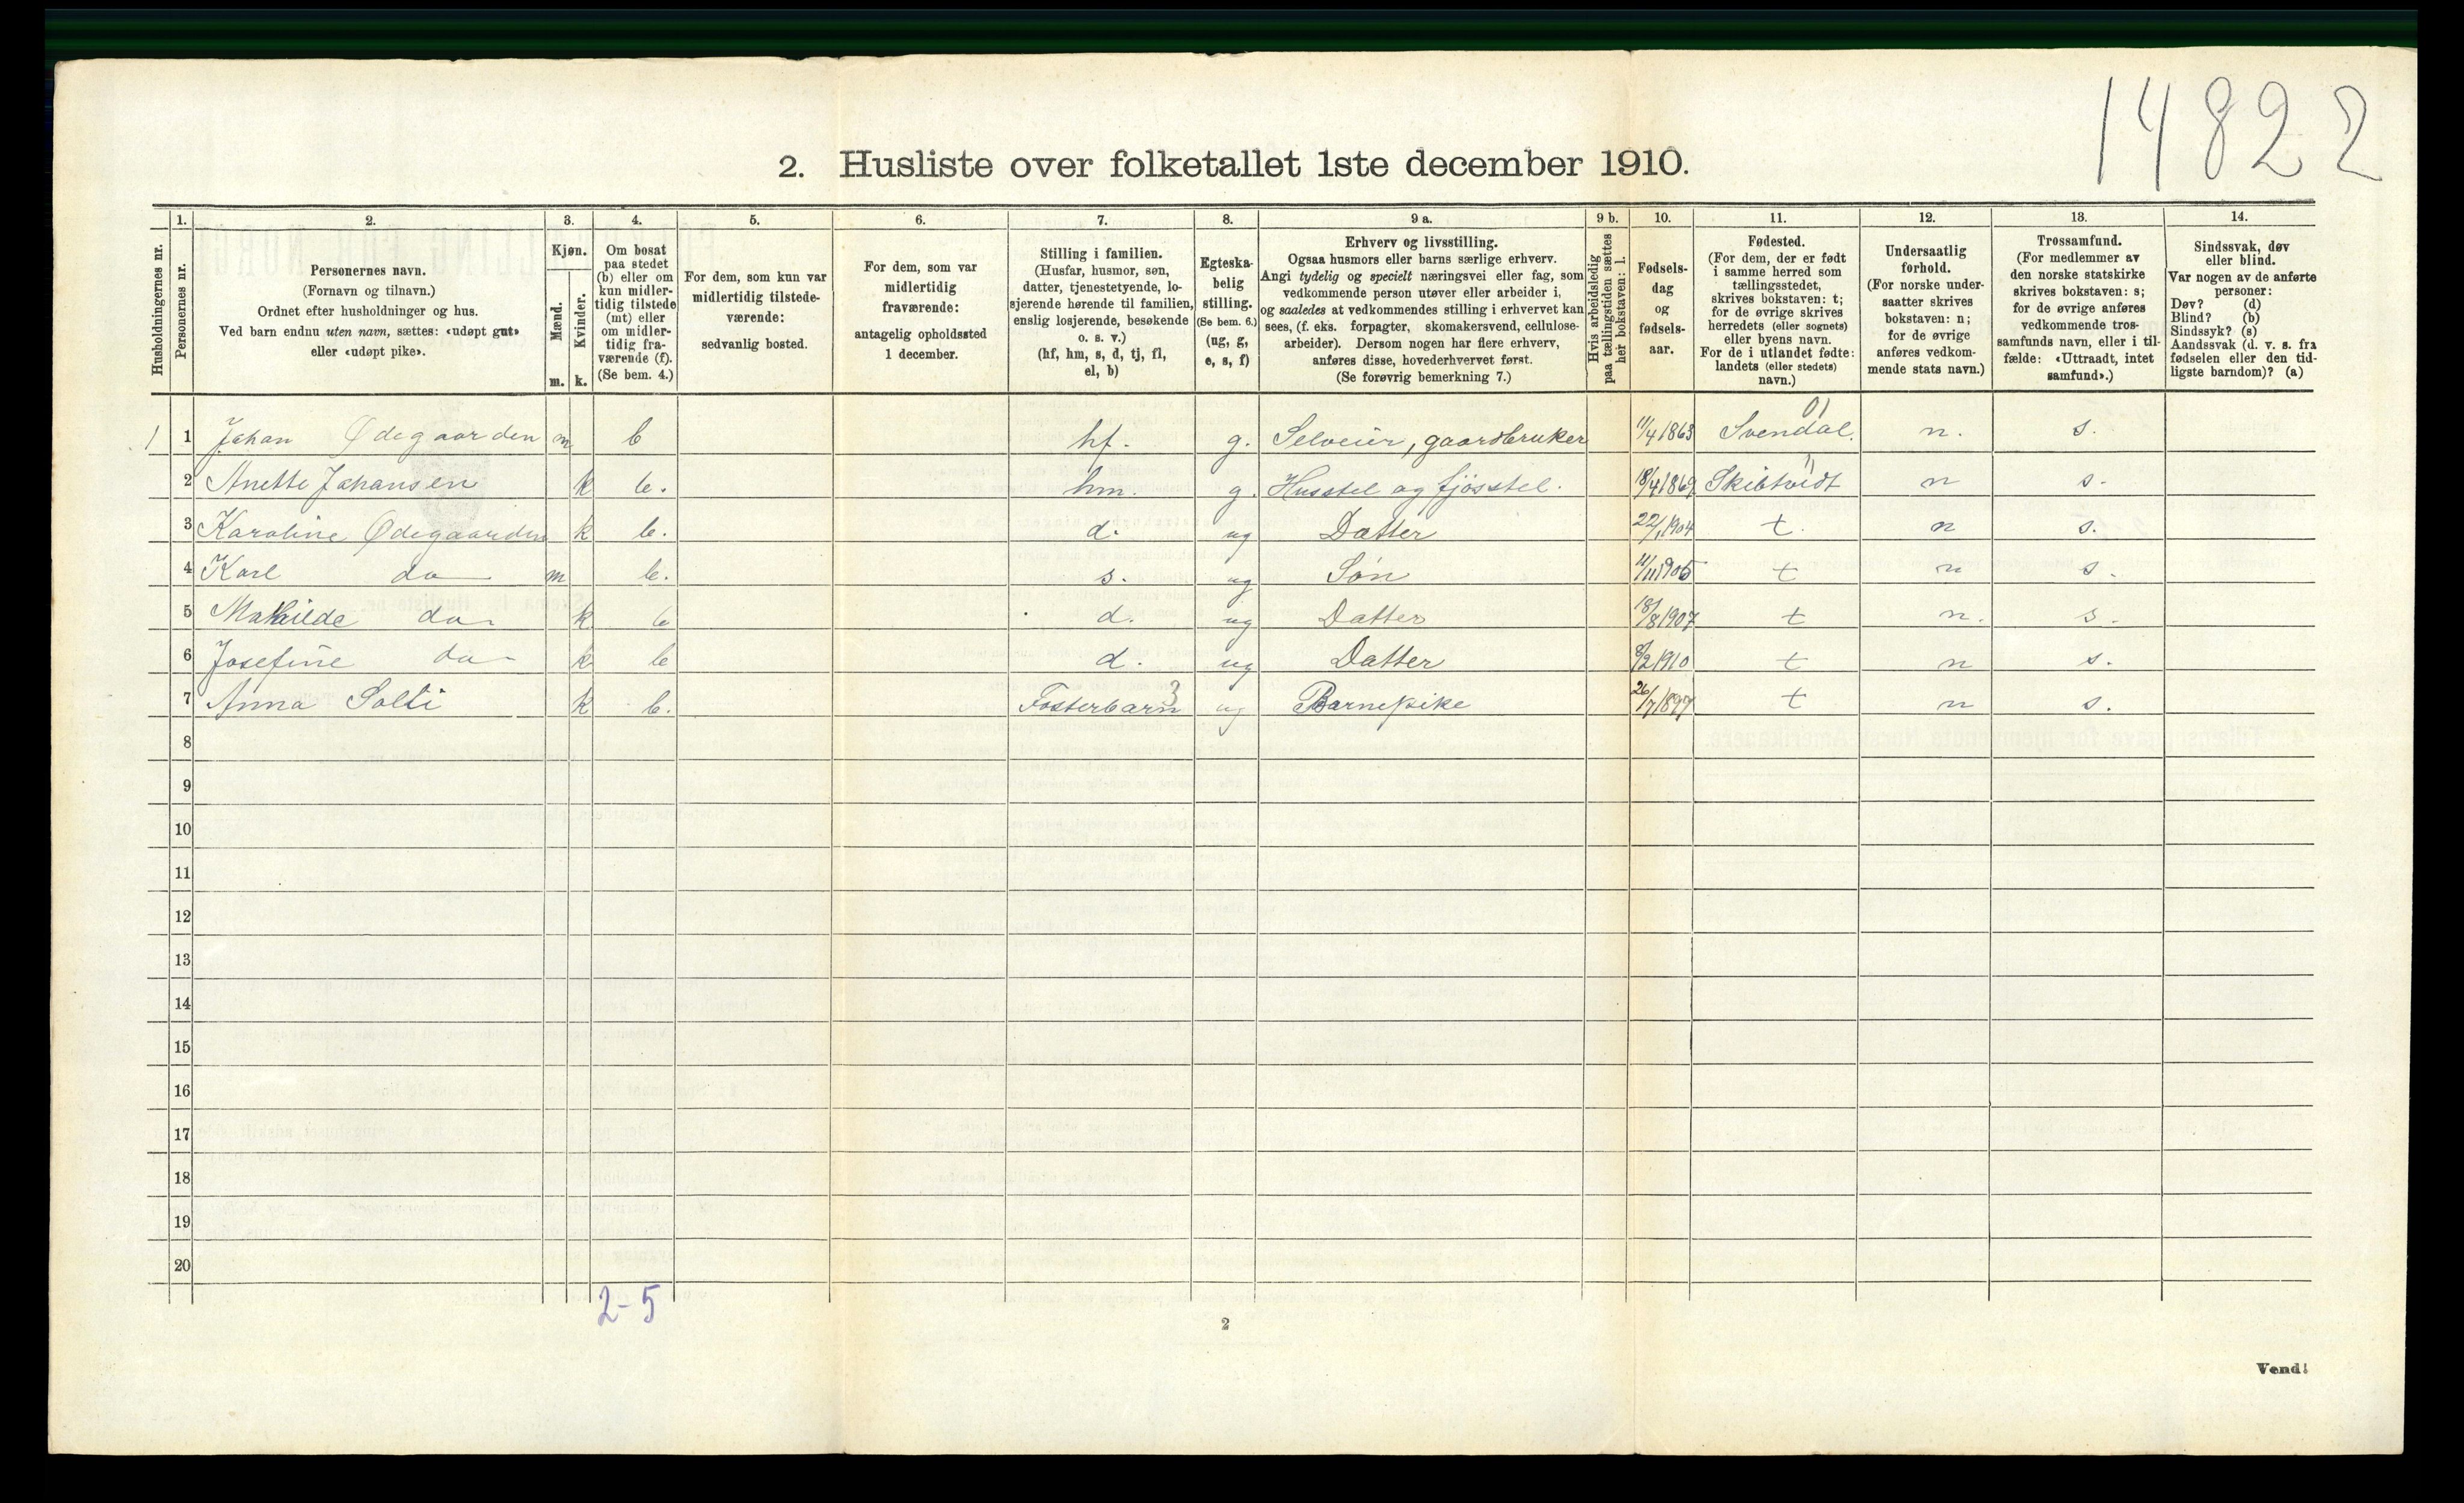 14822
2. Husliste over folketallet 1ste december 1910.
Husholdningernes nr.
1.
Personernes nr.
2.
Personernes navn.
(Fornavn og tilnavn.)
Ordnet efter husholdninger og hus.
Ved barn endnu uten navn, sættes: «udøpt gut»
eller «udøpt pike».
3.
Kjøn.
Mænd.
Kvinder.
m. k.
4.
Om bosat
paa stedet
(b) eller om
kun midler-
tidig tilstede
(mt) eller
om midler-
tidig fra-
værende (f).
(Se bem. 4.)
5.
For dem, som kun var
midlertidig tilstede-
værende:
sedvanlig bosted.
6.
For dem, som var
midlertidig
fraværende:
antagelig opholdssted
1 december.
7.
Stilling i familien.
(Husfar, husmor, søn,
datter, tjenestetyende, lo-
sjerende hørende til familien,
enslig losjerende, besøkende
o. s. v.)
(hf, hm, s, d, tj, fl,
el, b)
8.
Egteska-
belig
stilling.
(Se bem. 6.)
(ug, g,
e, s, f)
9 a.
Erhverv og livsstilling.
Ogsaa husmors eller barns særlige erhverv.
Angi tydelig og specielt næringsvei eller fag, som
vedkommende person utøver eller arbeider i,
og saaledes at vedkommendes stilling i erhvervet kan
sees, (f. eks. forpagter, skomakersvend, cellulose-
arbeider). Dersom nogen har flere erhverv,
anføres disse, hovederhvervet først.
(Se forøvrig bemerkning 7.)
9 b.
Hvis arbeidsledig
paa tællingstiden sættes
her bokstaven: l.
10.
Fødsels-
dag
og
fødsels-
aar.
11.
Fødested.
(For dem, der er født
i samme herred som
tællingsstedet,
skrives bokstaven: t;
for de øvrige skrives
herredets (eller sognets)
eller byens navn.
For de i utlandet fødte:
landets (eller stedets)
navn.)
12.
Undersaatlig
forhold.
(For norske under-
saatter skrives
bokstaven: n;
for de øvrige
anføres vedkom-
mende stats navn.)
13.
Trossamfund.
(For medlemmer av
den norske statskirke
skrives bokstaven: s;
for de øvrige anføres
vedkommende tros-
samfunds navn, eller i til-
fælde: «Uttraadt, intet
samfund».)
14.
Sindssvak, døv
eller blind.
Var nogen av de anførte
personer:
Døv? (d)
Blind? (b)
Sindssyk? (s)
Aandssvak (d. v. s. fra
fødselen eller den tid-
ligste barndom)? (a)
01
1 1 Johan Ødegaarden m b hf. g. Selveier, gaardbruker 11/4 1863 Svendal. n. s.
2 Anette Johansen k b. hm. g. Husstel og fjösstel. 18/4 1869 Skibtvedt n s.
3 Karoline Ødegaarden k b. d. ug Datter 22/1 1904 t. n s.
4 Karl do m b. s. ug Sön 11/11 1905 t n s.
5 Mathilde do k b d. ug Datter 18/8 1907 t n. s.
6 Josefine do k b d. ug Datter 8/2 1910 t n s.
3
7 Anna Solli k b. Fosterbarn ug Barnepike 26/7 1897 t n s.
8
9
10
11
12
13
14
15
16
17
18
19
20
2-5
2
Vend!